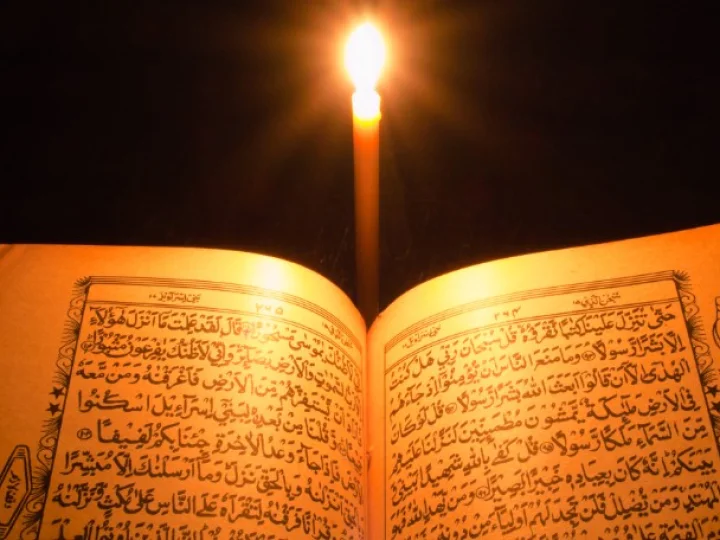 سُبْحٰنَ الَّذِىْ ١٥
٢٦٤
حَتّٰى تُنَزِّلَ عَلَيْنَا كِتٰبًا نَّقْرَؤُهٗ قُلْ سُبْحَانَ رَبِّىْ هَلْ كُنْتُ
اِلَّا بَشَرًا رَّسُوْلًا وَمَا مَنَعَ النَّاسَ اَنْ يُّؤْمِنُوْٓا اِذْ جَآءَهُمُ
الْهُدٰٓى اِلَّآ اَنْ قَالُوْٓا اَبَعَثَ اللّٰهُ بَشَرًا رَّسُوْلًا قُلْ لَّوْ كَانَ
فِى الْاَرْضِ مَلٰٓئِكَةٌ يَّمْشُوْنَ مُطْمَئِنِّيْنَ لَنَزَّلْنَا عَلَيْهِمْ
مِّنَ السَّمَآءِ مَلَكًا رَّسُوْلًا قُلْ كَفٰى بِاللّٰهِ شَهِيْدًاۢ بَيْنِىْ
وَبَيْنَكُمْ اِنَّهٗ كَانَ بِعِبَادِهٖ خَبِيْرًۢا بَصِيْرًا وَمَنْ يَّهْدِ اللّٰهُ
الْمُهْتَدِ وَمَنْ يُّضْلِلْ فَلَنْ تَجِدَ لَهُمْ اَوْلِيَآءَ مِنْ دُوْنِهٖ
٢٦٥
بَنِىْٓ اِسْرَآءِيْل ١٧
يٰمُوْسٰى مَسْحُوْرًا قَالَ لَقَدْ عَلِمْتَ مَآ اَنْزَلَ هٰٓؤُلَآءِ
وَالْاَرْضِ بَصَآئِرَ وَاِنِّىْ لَاَظُنُّكَ يٰفِرْعَوْنُ مَثْبُوْرًا
اَنْ يَّسْتَفِزَّهُمْ مِّنَ الْاَرْضِ فَاَغْرَقْنٰهُ وَمَنْ مَّعَهٗ
وَّقُلْنَا مِنْۢ بَعْدِهٖ لِبَنِىْٓ اِسْرَآءِيْلَ اسْكُنُوا
فَاِذَا جَآءَ وَعْدُ الْاٰخِرَةِ جِئْنَا بِكُمْ لَفِيْفًا
اَنْزَلْنٰهُ وَبِالْحَقِّ نَزَلَ وَمَآ اَرْسَلْنٰكَ اِلَّا مُبَشِّرًا
فَرَقْنٰهُ لِتَقْرَاَهٗ عَلَى النَّاسِ عَلٰى مُكْثٍ وَّنَزَّلْنٰهُ